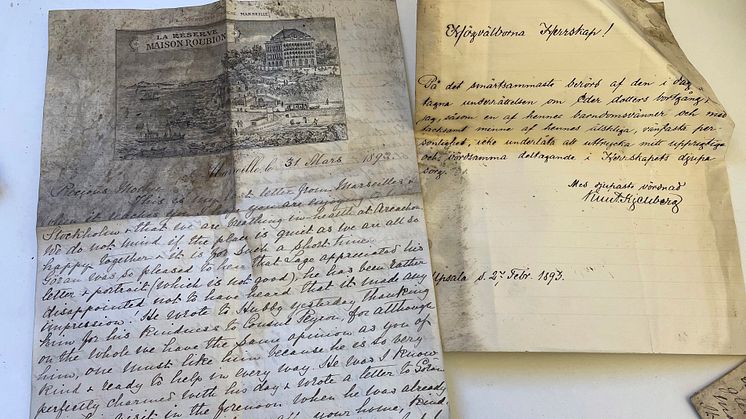 MARSEILLE
LA RÉSERVE
MAISON ROUBION
Marseille, le 31 Mars 1893
Precious Mother
This is my letter from Marseille &
when it reaches you are enjoying
Stockholm & that we are
We do not mind if the place is quiet as we are all so
happy together & it is for such a short time.
Göran was so pleased to hear that Tage appreciated his
letter & portrait (which is not good) he has been rather
disappointed not to have heard that it made any
impression! He wrote to Hubby yesterday thanking
him for his kindness to Consul Peyron, for although
on the whole we have the same opinion as you of
him, one must like him because he is so very
kind & ready to help in every way. He was I know
perfectly charmed with his day & wrote a letter to Göran
visit in the forenoon when he was already
all your home, kind
Högvälborna Herrskap!
På det smärtsammaste berörd af den i dag
tagna underrättelsen om Eder dotters bortgång,
jag, såsom en af hennes barndomsvänner och med
tacksamt minne af hennes älskliga, vänfasta per-
sonlighet, icke underlåta att uttrycka mitt uppriktiga
och vördsamma deltagande i Herrskapets djupa
sorg.
Med djupaste vördnad
Knut Kjellberg
Upsala d. 27 Febr. 1893.